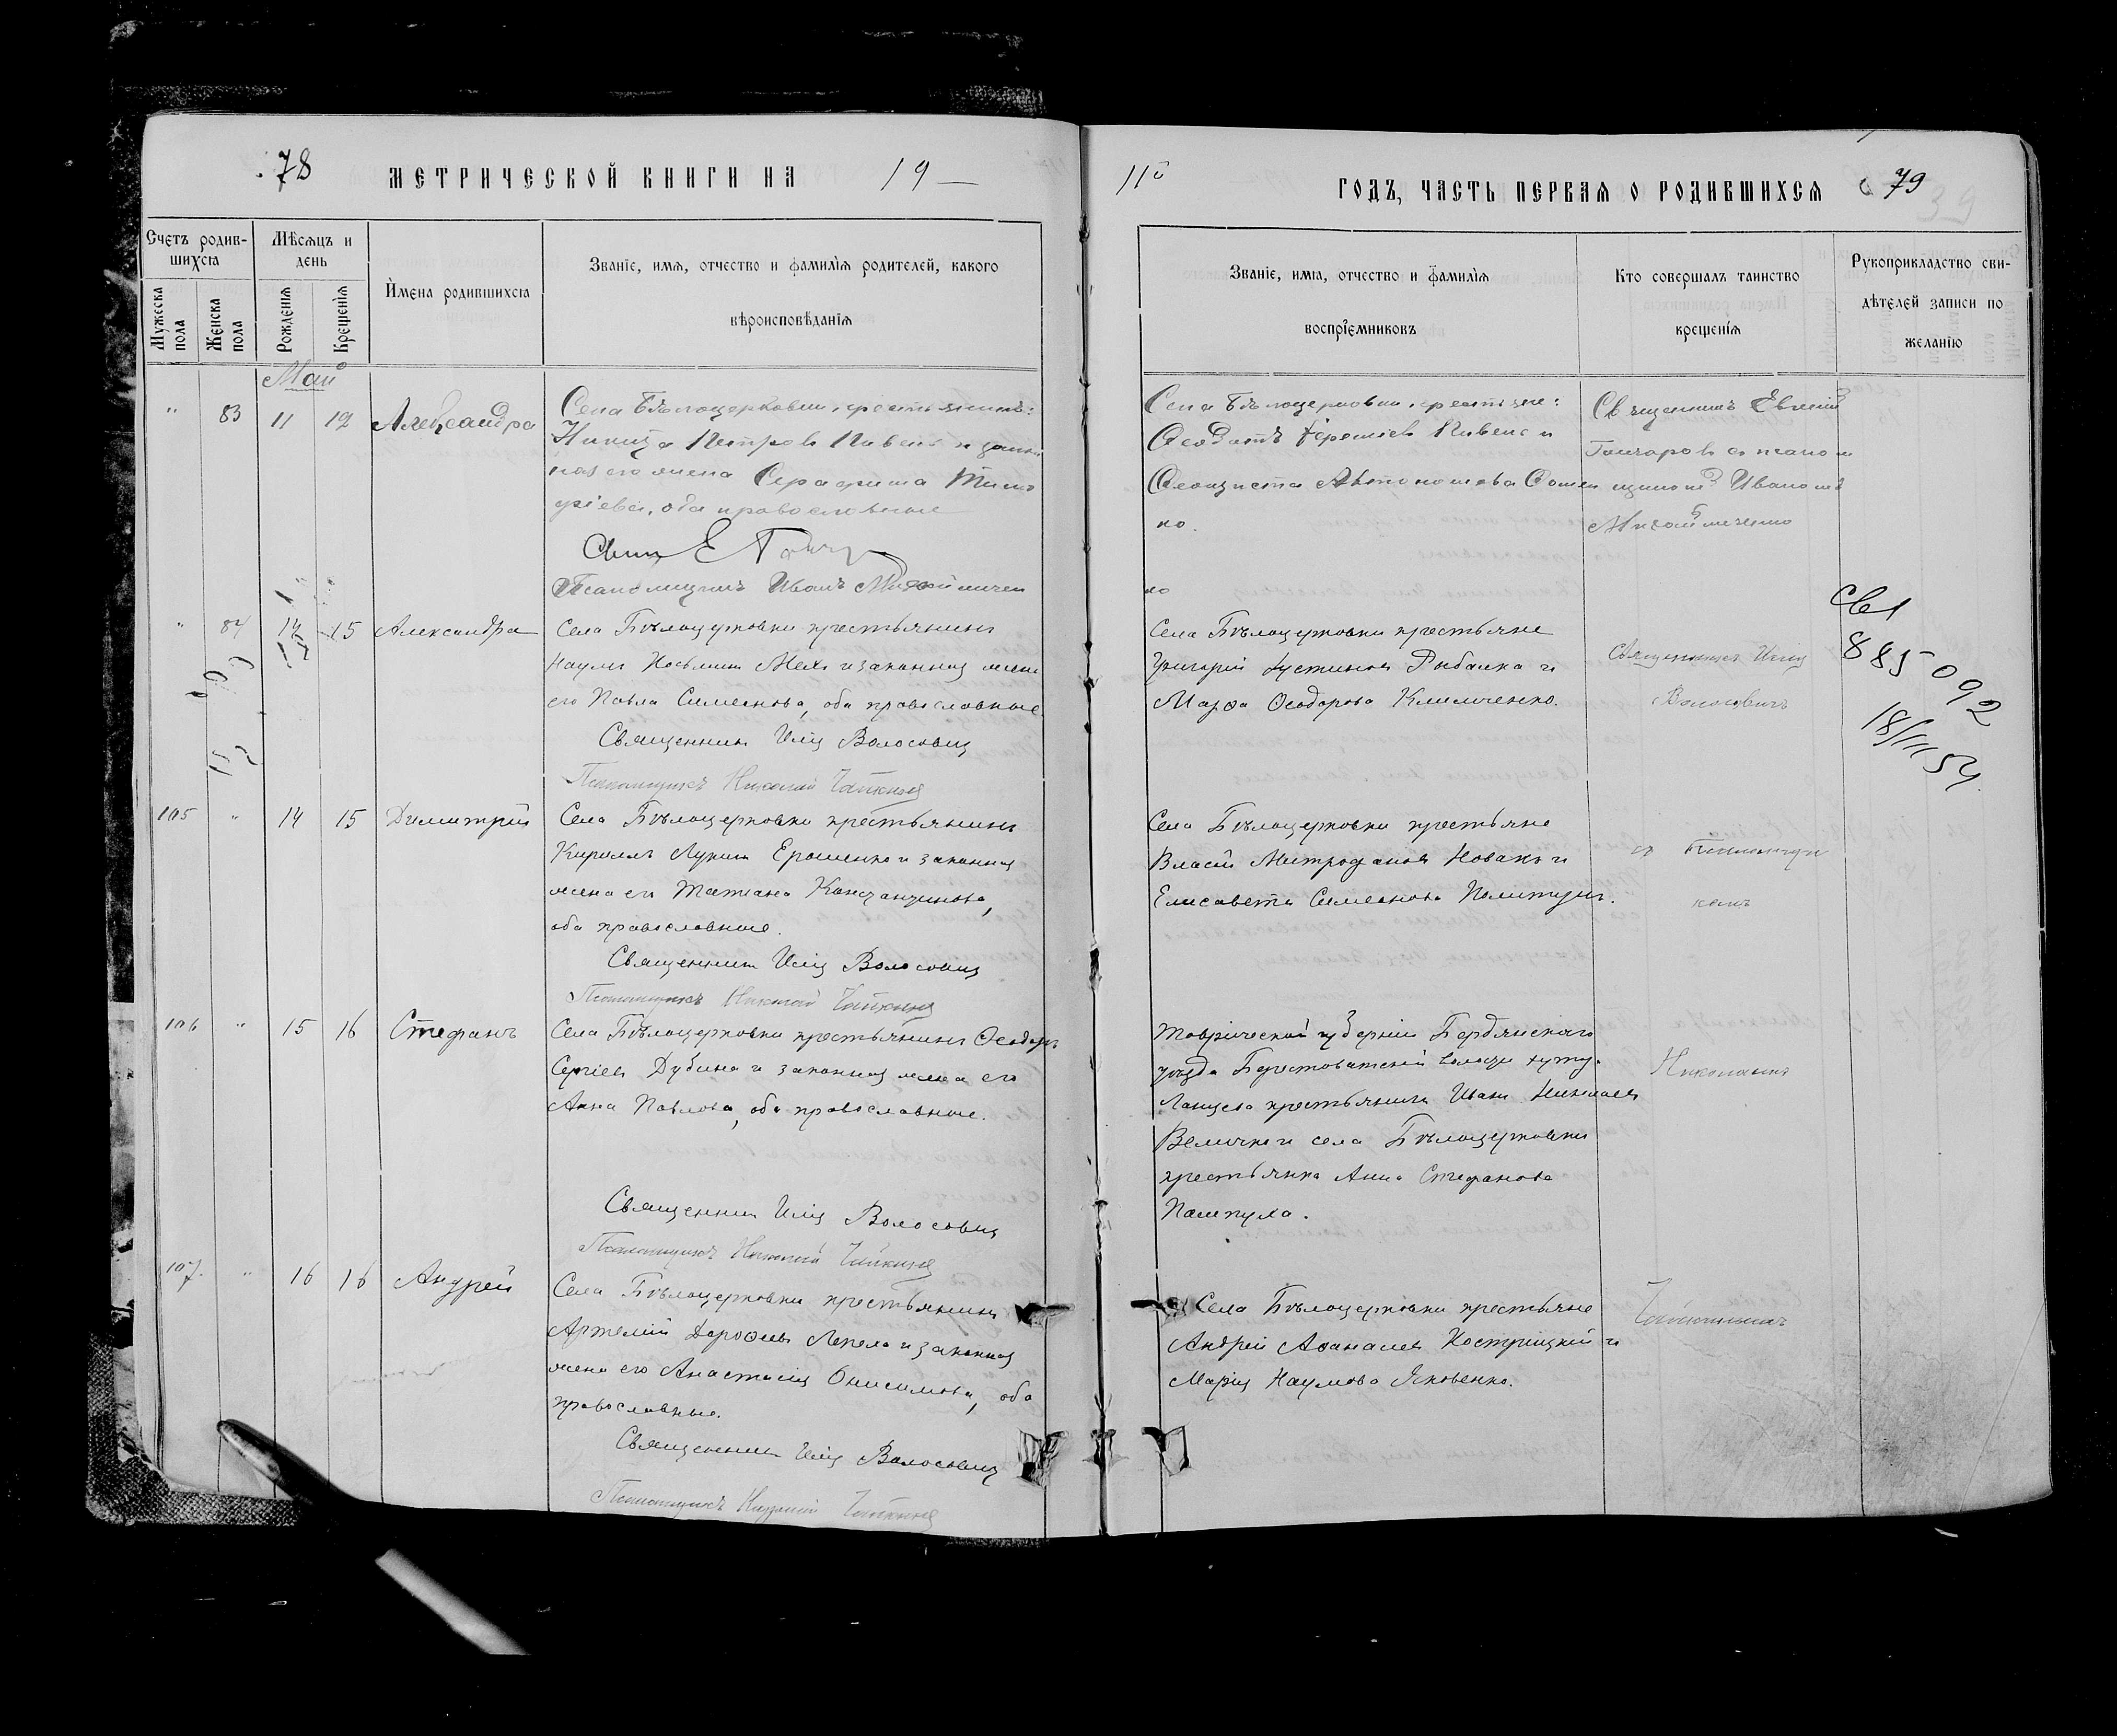 78 МЕТРИЧЕСКОЙ КНИГИ НА 19 —
Счетъ родив-
шихся
Мѣсяцъ и
день
Имена родившихся
Званіе, имя, отчество и фамилія родителей, какого
вѣроисповѣданія
Мужеска
пола
Женска
пола
Рожденія
Крещенія
Май
" 83 11 12 Александра
Села Бѣлоцерковки, крестьянинъ:
Никита Петровъ Пивень и закон
ная его жена Серафима
оба православные
Псаломщикъ Иванъ
" 84 14 15 Александра
Села Бѣлоцерковки крестьянинъ
Наумъ Косьминъ и законная жена
его Павла Симеонова, оба православные.
Священникъ Илія Волосовичъ
Псаломщикъ Николай
105 " 14 15 Димитрій
Села Бѣлоцерковки крестьянинъ
Кириллъ Лукинъ Ерошенко и законная
жена его Татіана Константинова,
оба православные.
Священникъ Илія Волосовичъ
Псаломщикъ Николай
106 " 15 16 Стефанъ
Села Бѣлоцерковки крестьянинъ Ѳеодоръ
Сергіевъ Дубина и законная жена его
Анна Павлова, оба православные.
Священникъ Илія Волосовичъ
Псаломщикъ Николай
107. " 16 16 Андрей
Села Бѣлоцерковки крестьянинъ
Артемій Дороѳеевъ Лепела и законная
жена его Анастасія Онисимова, оба
православные.
Священникъ Илія Волосовичъ
Псаломщикъ
11й ГОДЪ, ЧАСТЬ ПЕРВАЯ О РОДИВШИХСЯ 79
Званіе, имя, отчество и фамилія
воспріемниковъ
Кто совершалъ таинство
крещенія
Рукоприкладство сви-
дѣтелей записи по
желанію
Села Бѣлоцерковки, крестьяне:
Ѳеодотъ Пивень и
Ѳеоктиста Автономова
ко.
Священникъ Евгеній
Гончаровъ съ псалом
щикомъ Иваномъ
ко
Села Бѣлоцерковки крестьяне
Григорій Іустиновъ Рыбалка и
Марѳа Ѳеодорова Клименченко.
Священникъ Илія
Волосовичъ
885092
18/III 54.
Села Бѣлоцерковки крестьяне
Власій Митрофановъ Новакъ и
Елисавета Симеонова
съ псаломщи
комъ
Таврической губерніи Бердянскаго
уѣзда Берестоватской волости хутора
крестьянинъ Иванъ Николаевъ
Величко и села Бѣлоцерковки
крестьянка Анна Стефанова
Пампула.
Николаемъ
Села Бѣлоцерковки крестьяне
Андрей Аѳанасіевъ Кострицкій и
Марія Наумова Яковенко.